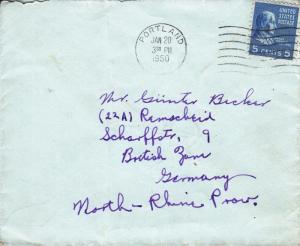 PORTLAND
JAN 20
3 30 PM
1950
UNITED STATES
POSTAGE
5 CENTS 5
Mr. Günter Becker
(22A) Remscheid
Scharffstr. 9
British Zone
Germany
North-Rhine Prov.